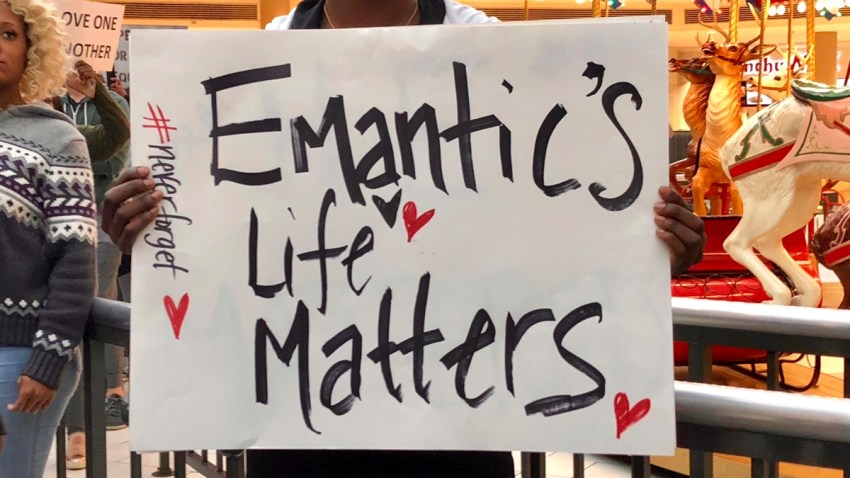 OVE ONE
NOTHER
Emantic's
Life
Matters
#neverforget